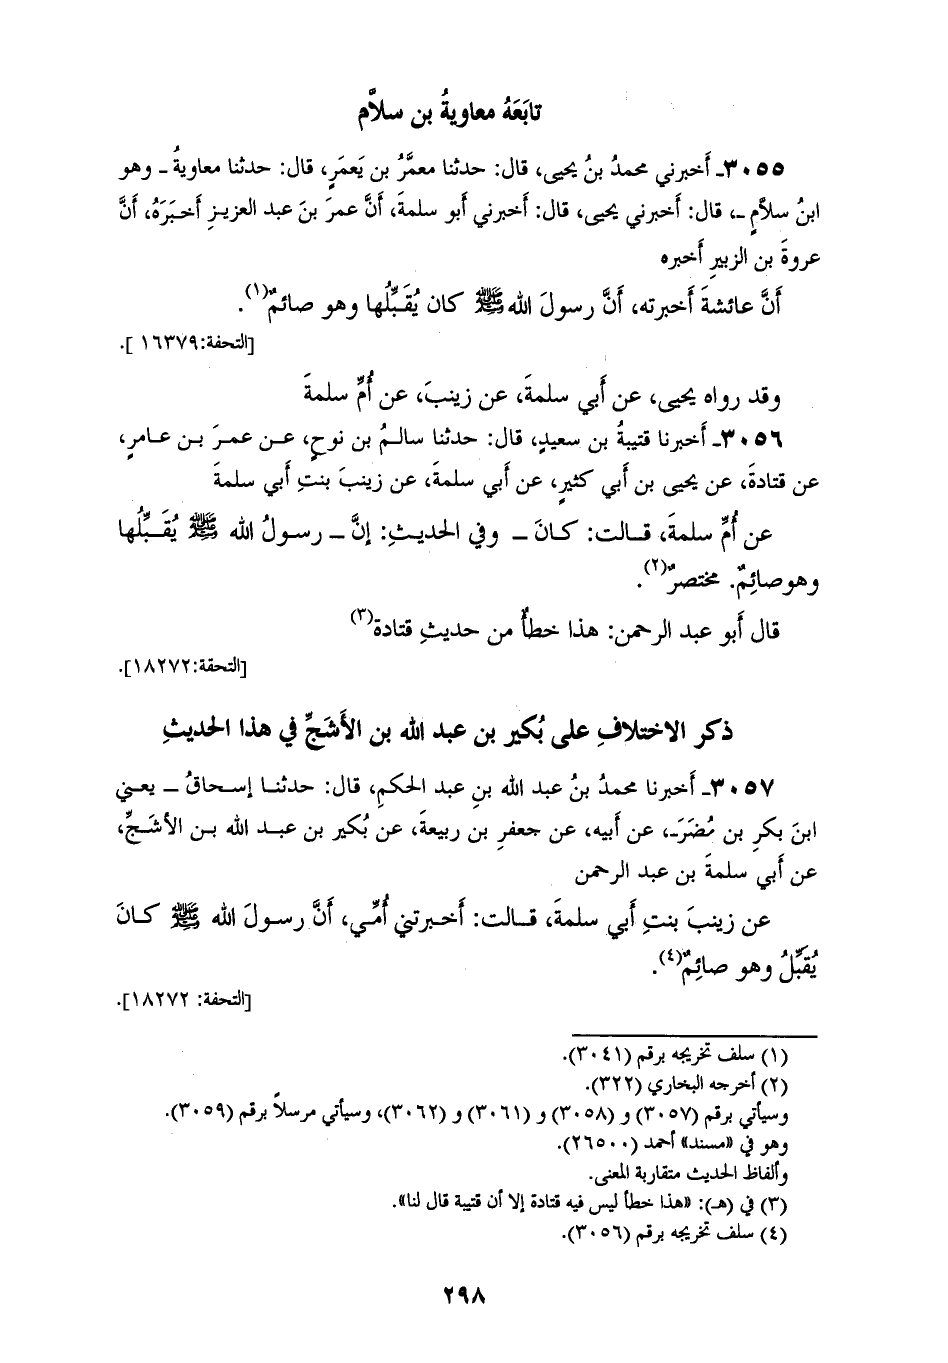 تابَعَهُ معاويةُ بن سلاَّم
٣٠٥٥ـ أَخبرني محمدُ بنُ يحيى، قال: حدثنا معمَّرُ بن يَعمَرٍ، قال: حدثنا معاويةُ ـ وهو
ابنُ سلاَّمٍ ـ، قال: أَخبرني يحيى، قال: أَخبرني أَبو سلمةَ، أَنَّ عمرَ بنَ عبد العزيزِ أَخبَرَهُ، أَنَّ
عروةَ بن الزبيرِ أَخبره
أَنَّ عائشةَ أَخبرته، أَنَّ رسولَ الله ﷺ كان يُقَبِّلُها وهو صائمٌ(١).
[التحفة:١٦٣٧٩].
وقد رواه يحيى، عن أَبي سلمةَ، عن زينبَ، عن أُمِّ سلمةَ
٣٠٥٦ـ أَخبرنا قتيبةُ بن سعيدٍ، قال: حدثنا سالمُ بن نوحٍ، عن عمرَ بن عامرٍ،
عن قتادةَ، عن يحيى بن أَبي كثيرٍ، عن أَبي سلمةَ، عن زينبَ بنتِ أَبي سلمةَ
عن أُمِّ سلمةَ، قالت: كانَ ـ وفي الحديثِ: إنَّ ـ رسولُ الله ﷺ يُقَبِّلُها
وهوصائِمٌ. مختصرٌ(٢).
قال أَبو عبد الرحمن: هذا خطأٌ من حديثِ قتادة(٣)
[التحفة:١٨٢٧٢].
ذكر الاختلافِ على بُكير بن عبد الله بن الأَشَجِّ في هذا الحديثِ
٣٠٥٧ـ أَخبرنا محمدُ بنُ عبد الله بنِ عبد الحكمِ، قال: حدثنا إسحاقُ ـ يعني
ابنَ بكرِ بن مُضَرَـ، عن أَبيه، عن جعفرِ بن ربيعةَ، عن بُكير بن عبد الله بن الأشَجِّ،
عن أَبي سلمةَ بن عبد الرحمن
عن زينبَ بنتِ أَبي سلمةَ، قالت: أَخبرتني أُمِّي، أَنَّ رسولَ الله ﷺ كانَ
يُقَبِّلُ وهو صائِمٌ(٤).
[التحفة: ١٨٢٧٢].
(١) سلف تخريجه برقم (٣٠٤١).
(٢) أخرجه البخاري (٣٢٢).
وسيأتي برقم (٣٠٥٧) و (٣٠٥٨) و (٣٠٦١) و (٣٠٦٢)، وسيأتي مرسلاً برقم (٣٠٥٩).
وهو في «مسند» أحمد (٢٦٥٠٠).
وألفاظ الحديث متقاربة المعنى.
(٣) في (هـ): «هذا خطأ ليس فيه قتادة إلا أن قتيبة قال لنا».
(٤) سلف تخريجه برقم (٣٠٥٦).
٢٩٨